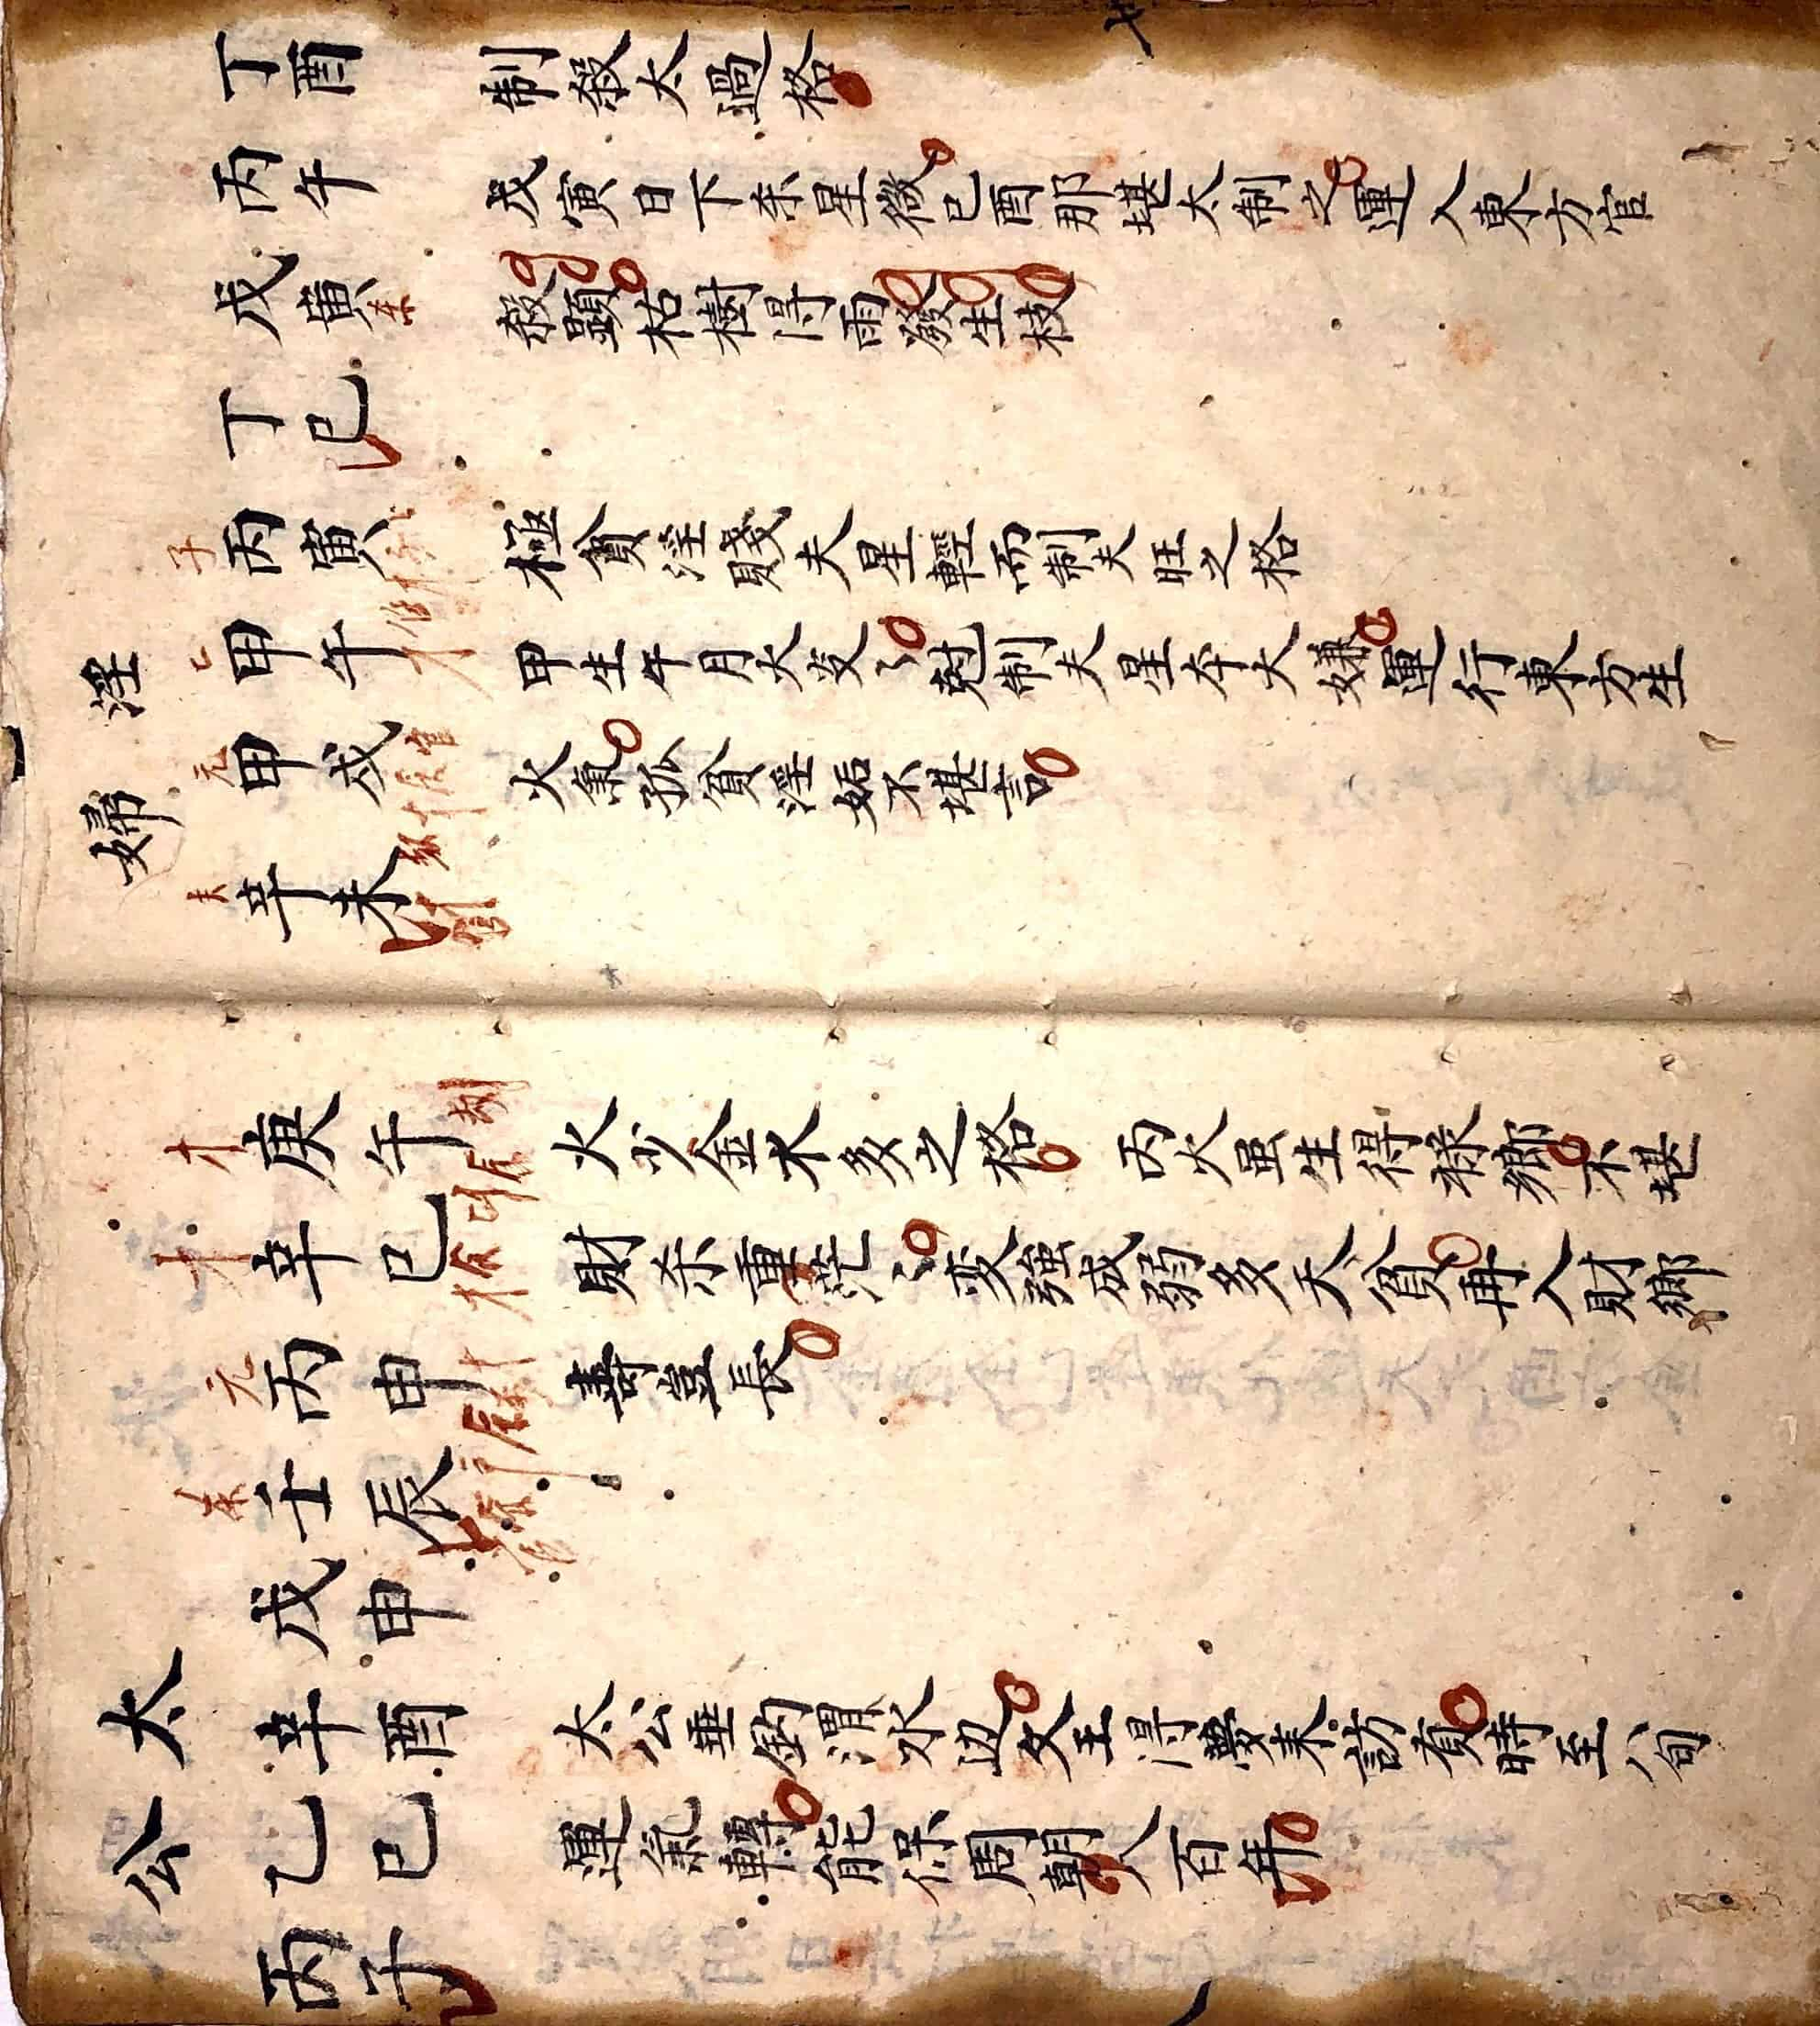 丁酉 制殺太過格
丙午 戊寅日下杀星微己酉那堪太制之運入東方官
戊寅 殺顕枯樹得雨發生枝
丁巳
淫婦
丙寅 極貧淫賤夫星輕而制夫旺之格
甲午 甲生午月火炎〻尅制夫星夲大嫌運行東方生
甲戌 火氣孤貧淫姤不堪言
辛未
庚午 火少金水多之格 丙火虽生得祿鄉不堪
辛巳 財杀重茫〻变強成弱多夭貧再入財鄉
丙申 壽豈長
壬辰
太公
戊申
辛酉 太公垂釣渭水边文王得夢来訪贤時至八旬
乙巳 運氣轉能保周朝八百年
丙子